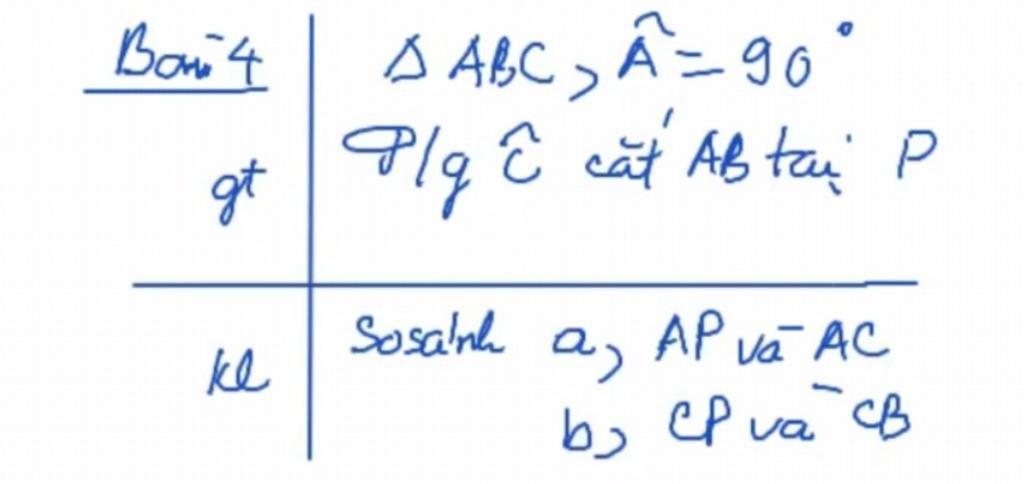 Bài 4
Δ ABC, Â = 90°
gt
T/g Ĉ cắt AB tại P
kl
So sánh a, AP và AC
b, CP và CB